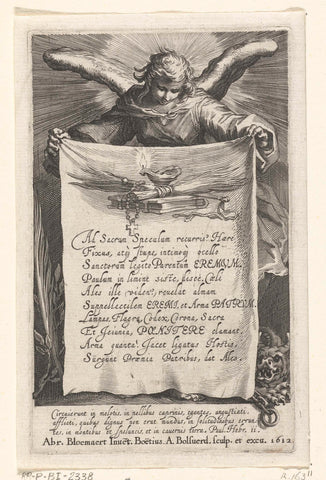 Ad Sacrum Speculum recurris? Hære
Fixus, atq; stupe intimoq; ocello
Sanctorum legito Parentum EREMVM.
Paulum in limine siste, siste, Cæli
Ales ille videri, revelat almam
Suppellectilem EREMI, et Arma PATRVM.
Lampas, Flagra, Codex, Corona, Sacra
Et Ieiunia, POENITERE clamant.
Arma quanta! Jacet ligatus Hostis,
Surgunt Præmia Patribus, dat Ales.
Circuierunt in melotis, in pellibus caprinis, egentes, angustiati,
afflicti, quibus dignus non erat mundus, in solitudinibus erran-
tes, in montibus et speluncis, et in cavernis terræ. Paul. Hebr. 11.
Abr. Bloemaert Invēt. Boëtius. A. Bolsuerd. sculp. et excu. 1612
RP-P-BI-2338